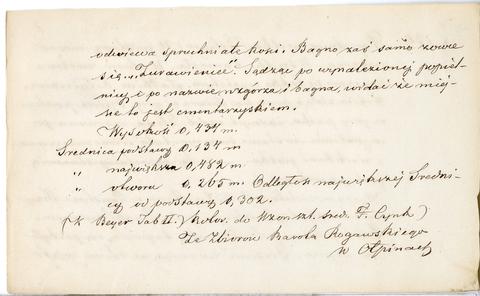 odwiewa spruchniałe kości. Bagno zaś samo zowie
się „Żurawieniec". Sądząc po wynalezionej popiel-
nicy i po nazwie wzgórza i bagna, widać że miej-
sce to jest cmentarzyskiem.
Wysokość 0,434 m.
Średnica podstawy 0,134 m
„ największa 0,482 m
„ otworu 0,265 m. Odległość największej Średni-
cy od podstawy 0,302.
(k Beyer Tab II.) kolor. do Wzor. szt. śred.
Ze Zbiorów Karola Rogawskiego
w Ołpinach